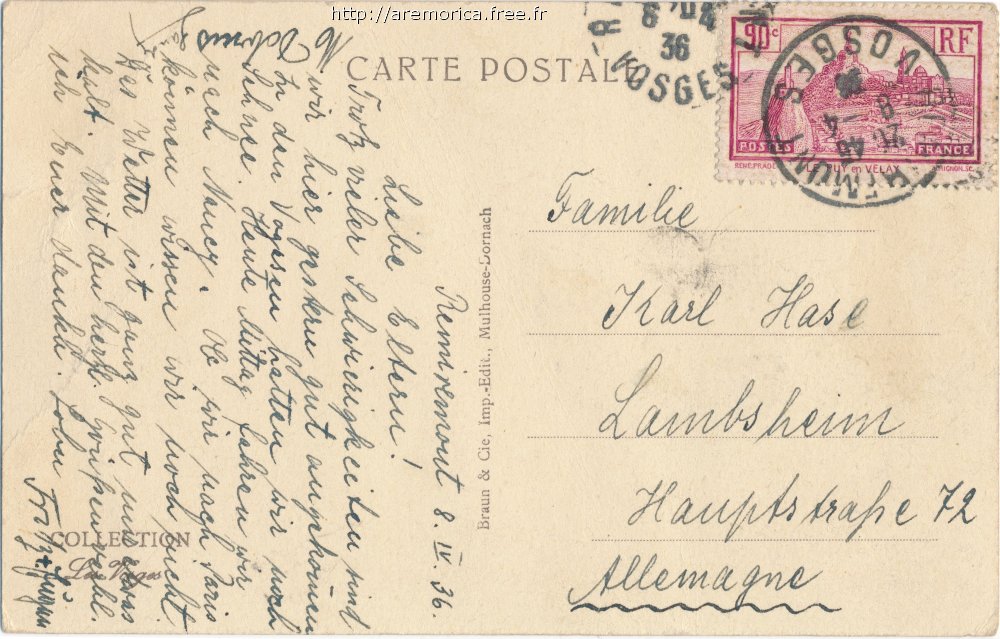 http://aremorica.free.fr
CARTE POSTALE
36
VOSGES
90c
RF
POSTES
FRANCE
LE PUY en VELAY
VOSGES
8 - 4
36
Remiremont 8. IV. 36.
Liebe Eltern!
Trotz vieler Schwierigkeiten sind
wir hier gestern gut angekommen
In den Vogesen hatten wir noch
Schnee. Heute Mittag fahren wir
nach Nancy. Ob wir nach Paris
können wissen wir noch nicht.
Das Wetter ist ganz gut nur etwas
kalt. Mit den herzl. Grüßen verbl.
ich Euer dankb. Sohn
Braun & Cie, Imp.-Edit., Mulhouse-Dornach
COLLECTION
Les Vosges
Familie
Karl Hase
Lambsheim
Hauptstraße 72
Allemagne